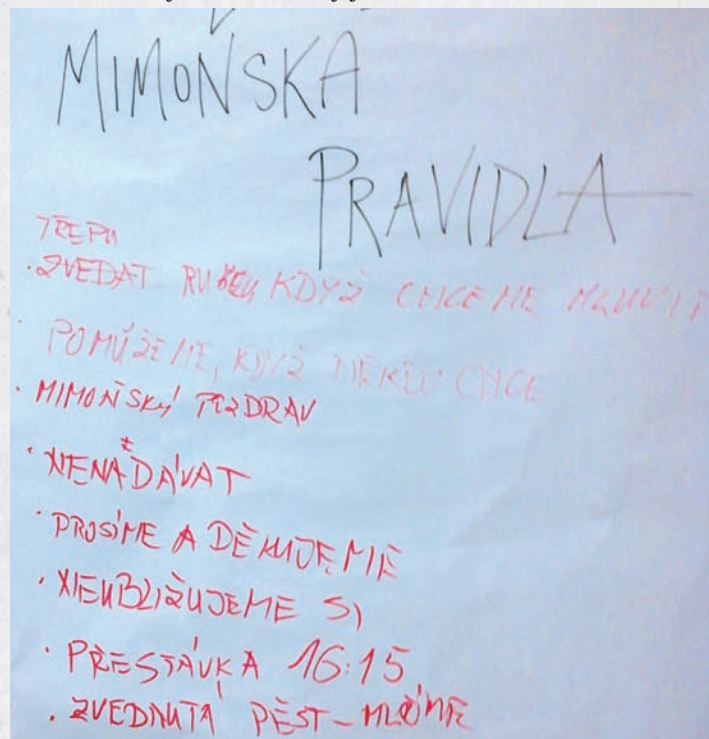 MIMOŇSKÁ
PRAVIDLA
· ZVEDAT RUKU KDYŽ CHCEME MLUVIT
· POMŮŽEME, KDYŽ NĚKDO CHCE
· MIMOŇSKÝ POZDRAV
· NENADÁVAT
· PROSÍME A DĚKUJEME
· NEUBLIŽUJEME SI
· PŘESTÁVKA 16:15
· ZVEDNUTÁ PĚST - MLČÍME